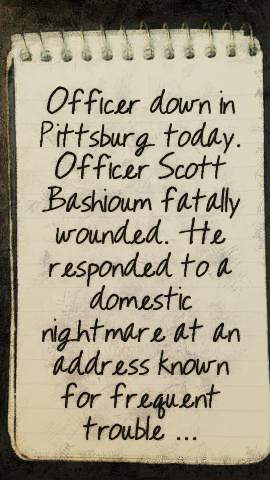 Officer down in
Pittsburg today.
Officer Scott
Bashioum fatally
wounded. He
responded to a
domestic
nightmare at an
address known
for frequent
trouble ...